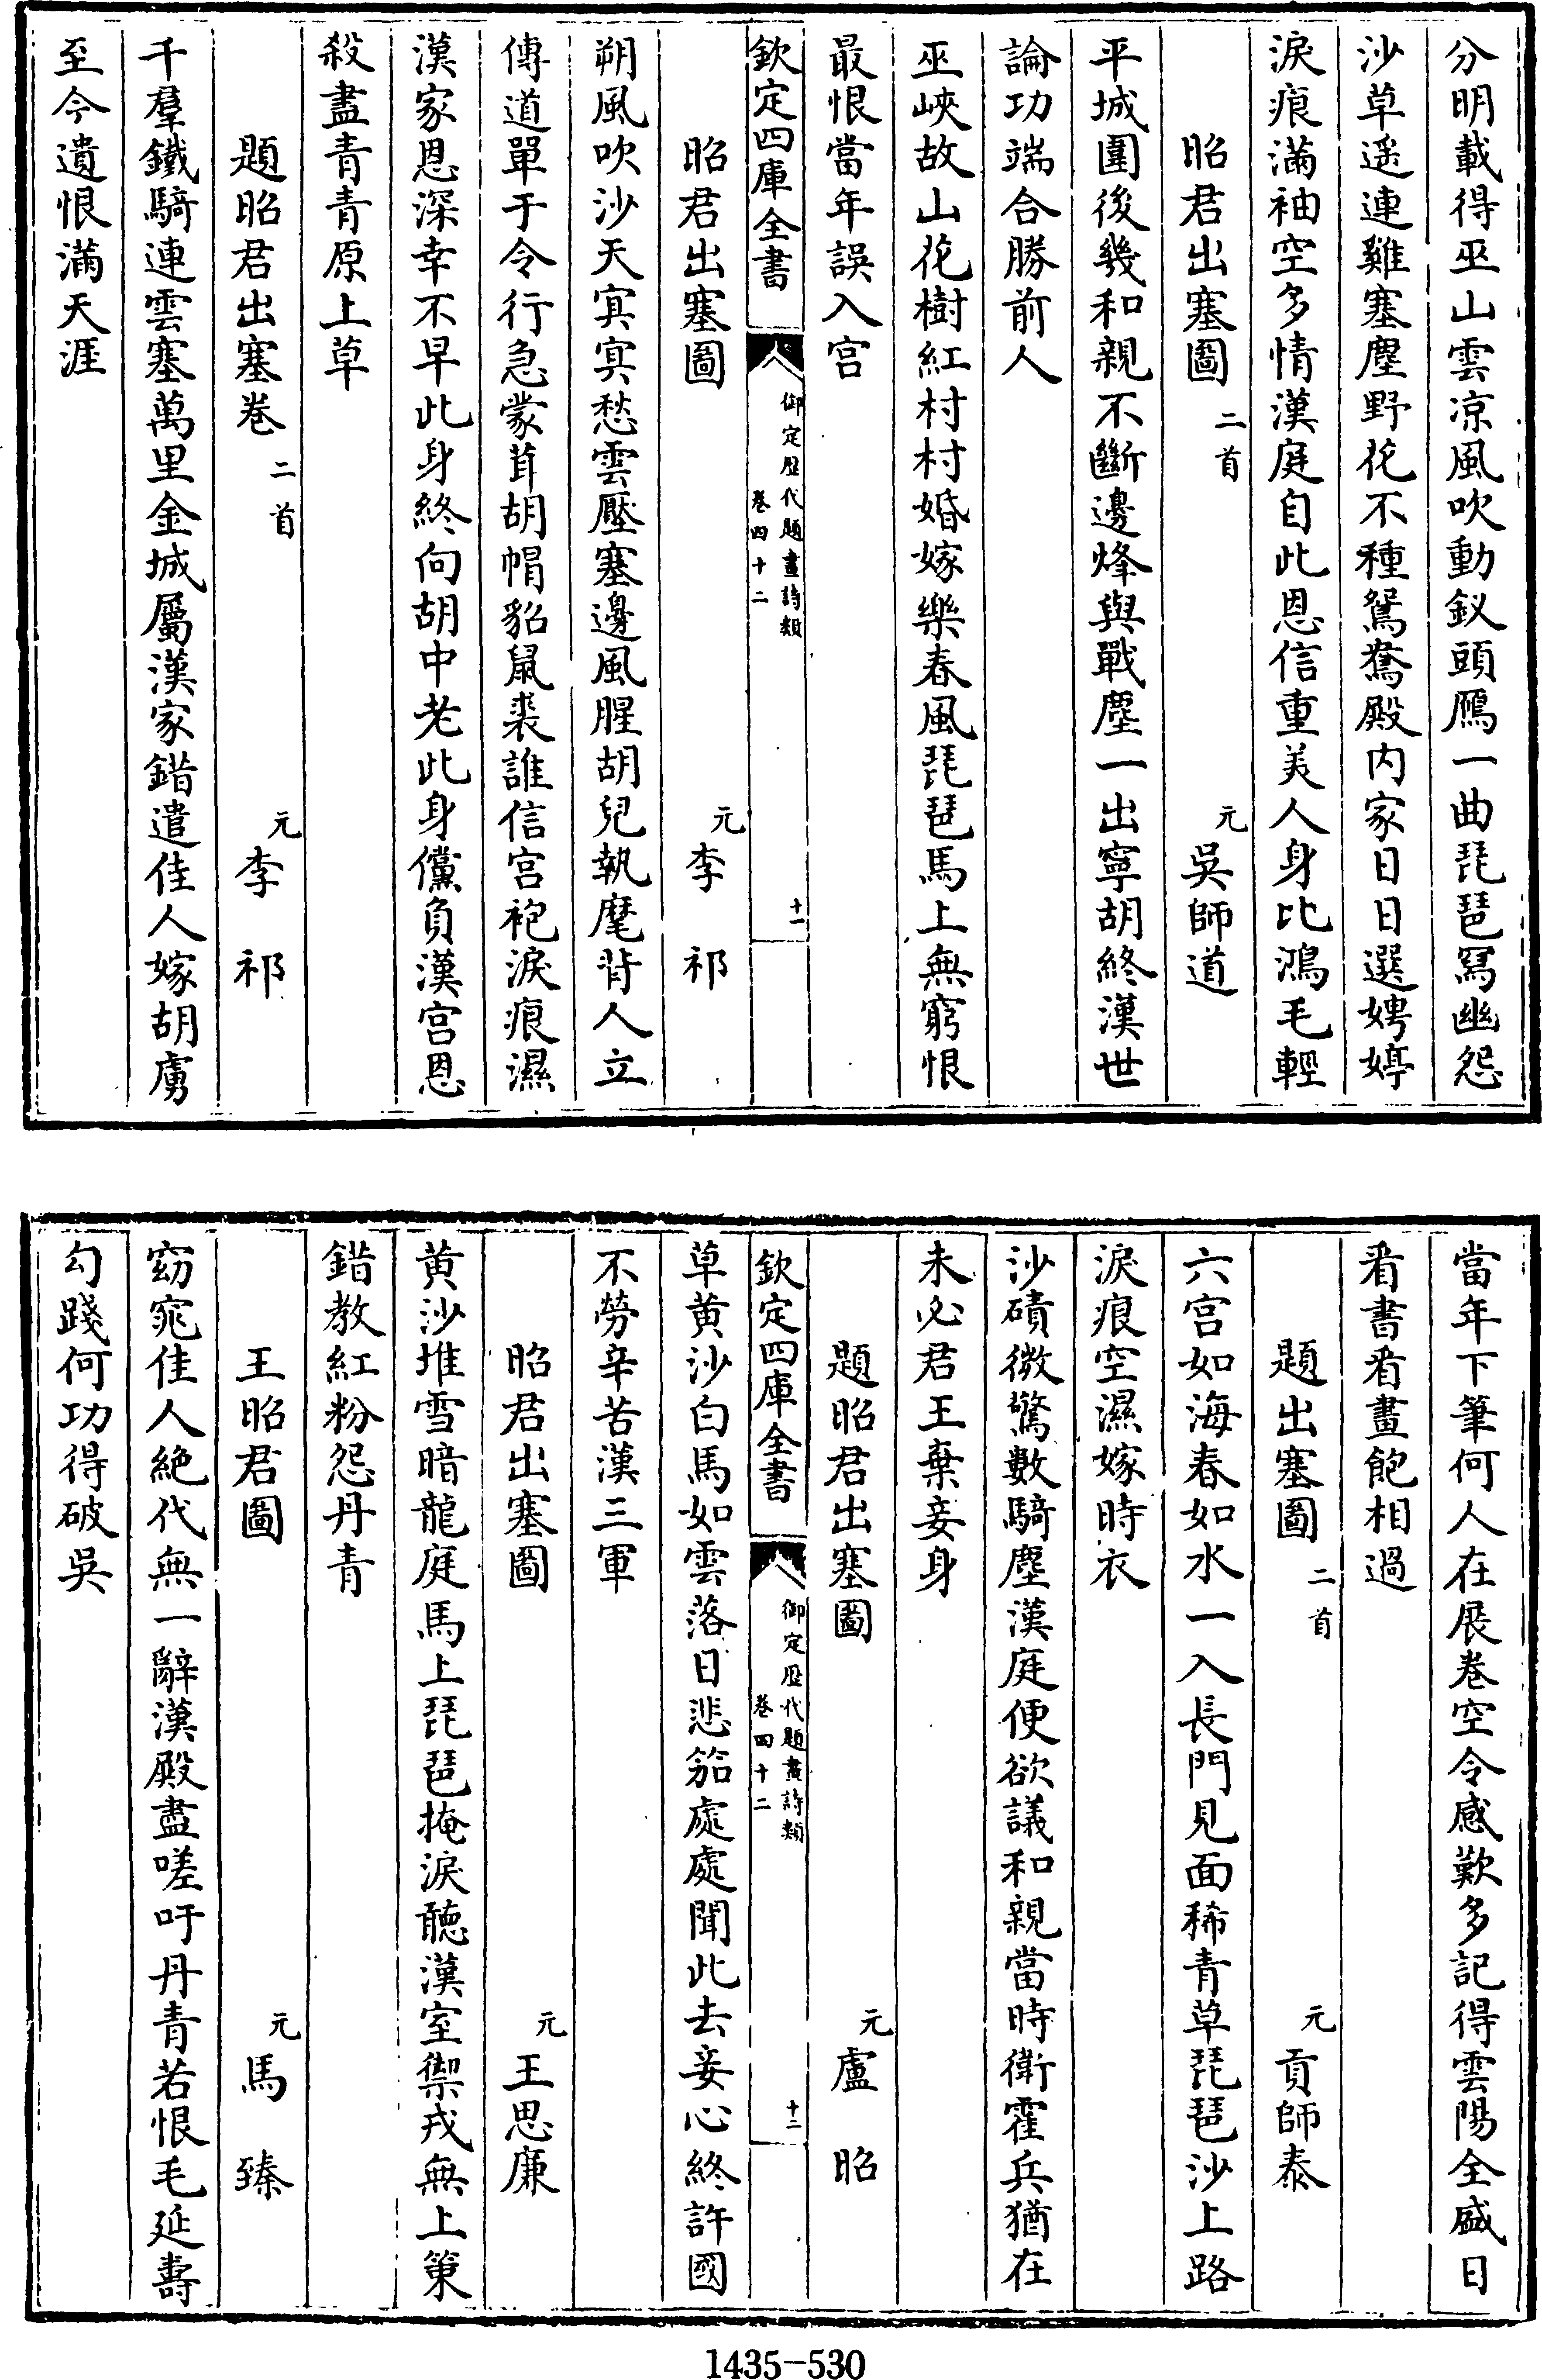 分明載得巫山雲凉風吹動釵頭鴈一曲琵琶冩幽怨
沙草遥連雞塞塵野花不種鴛鴦殿内家日日選娉婷
淚痕滿袖空多情漢庭自此恩信重美人身比鴻毛輕
昭君出塞圖 二首 元 吳師道
平城圍後幾和親不斷邊烽與戰塵一出寧胡終漢世
論功端合勝前人
巫峽故山花樹紅村村婚嫁樂春風琵琶馬上無窮恨
最恨當年誤入宫
欽定四庫全書 御定歷代題畫詩類 卷四十二 十一
昭君出塞圖 元 李祁
朔風吹沙天寘寘愁雲壓塞邊風腥胡兒執麾背人立
傳道單于令行急蒙茸胡帽貂鼠裘誰信宫袍淚痕濕
漢家恩深幸不早此身終向胡中老此身儻負漢宫恩
殺盡青青原上草
題昭君出塞卷 二首 元 李祁
千羣鐵騎連雲塞萬里金城屬漢家錯遣佳人嫁胡虜
至今遺恨滿天涯
當年下筆何人在展卷空令感歎多記得雲陽全盛日
看書看畫飽相過
題出塞圖 二首 元 貢師泰
六宫如海春如水一入長門見面稀青草琵琶沙上路
淚痕空濕嫁時衣
沙磧微驚數騎塵漢庭便欲議和親當時衛霍兵猶在
未必君王棄妾身
題昭君出塞圖 元 盧昭
欽定四庫全書 御定歷代題畫詩類 卷四十二 十二
草黄沙白馬如雲落日悲笳處處聞此去妾心終許國
不勞辛苦漢三軍
昭君出塞圖 元 王思廉
黄沙堆雪暗龍庭馬上琵琶掩淚聽漢室禦戎無上策
錯教紅粉怨丹青
王昭君圖 元 馬臻
窈窕佳人絶代無一辭漢殿盡嗟吁丹青若恨毛延壽
勾踐何功得破吳
1435-530